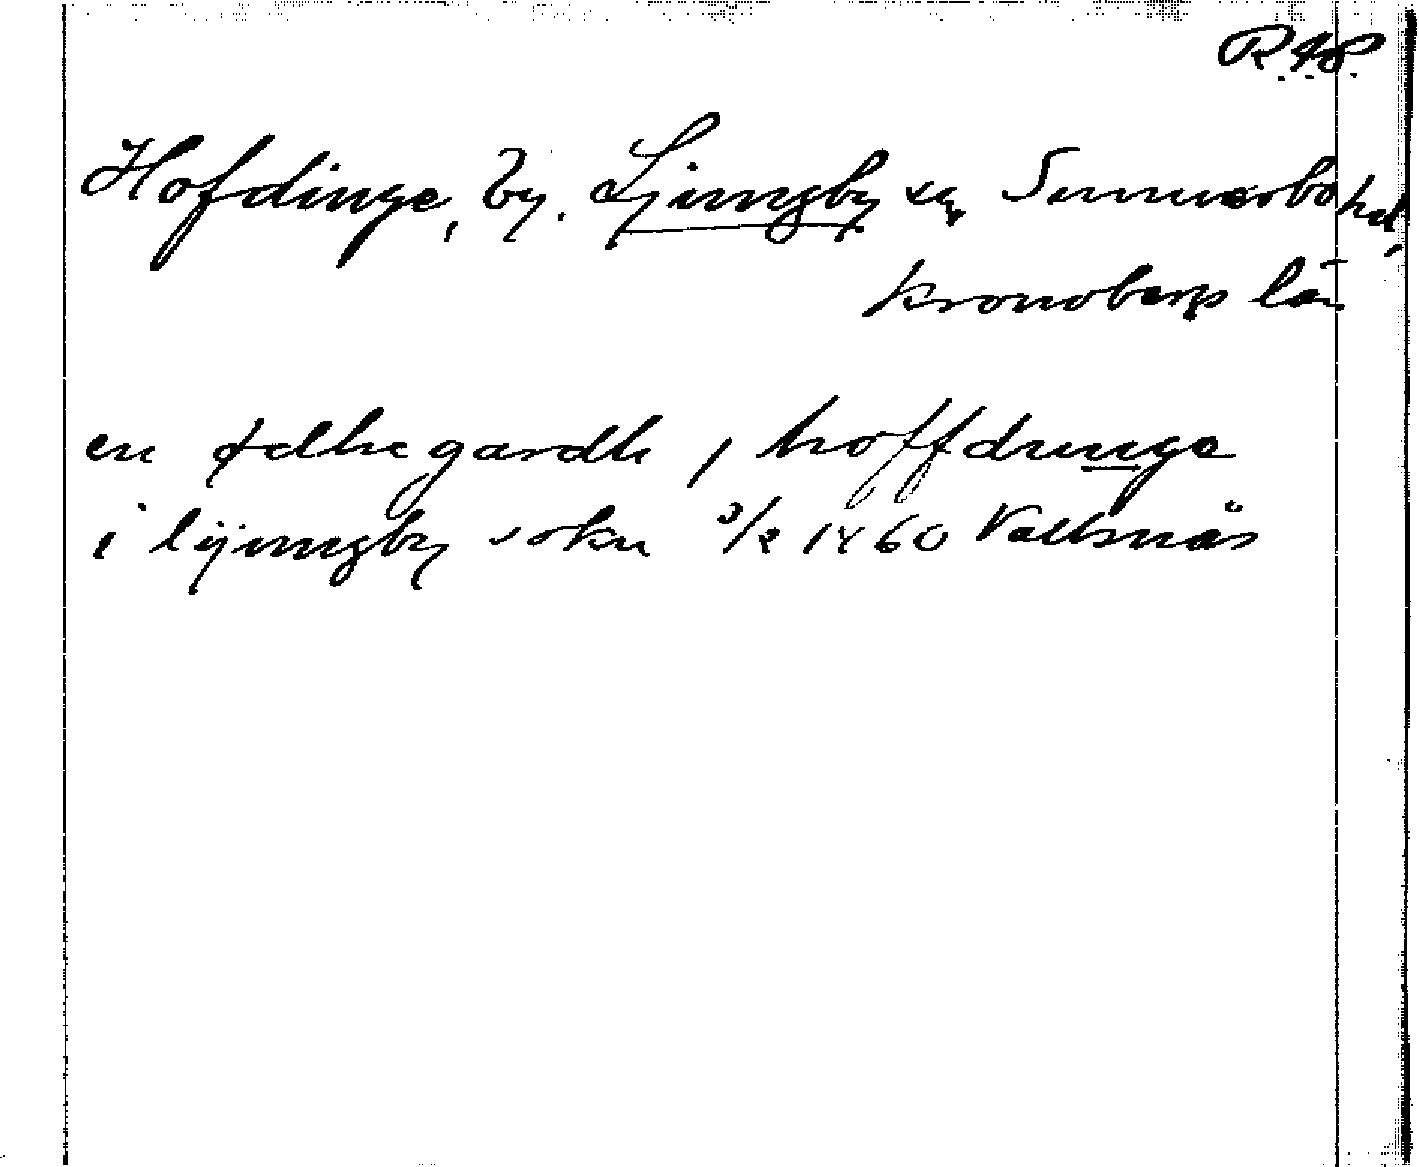 R. 48.
Hofdinge, by. Ljungby sn, Sunnerbo hd,
Kronobergs län
en ødhe gardh, hoffdrunge
i lijungby sokn 3/2 1460 Vallsnäs